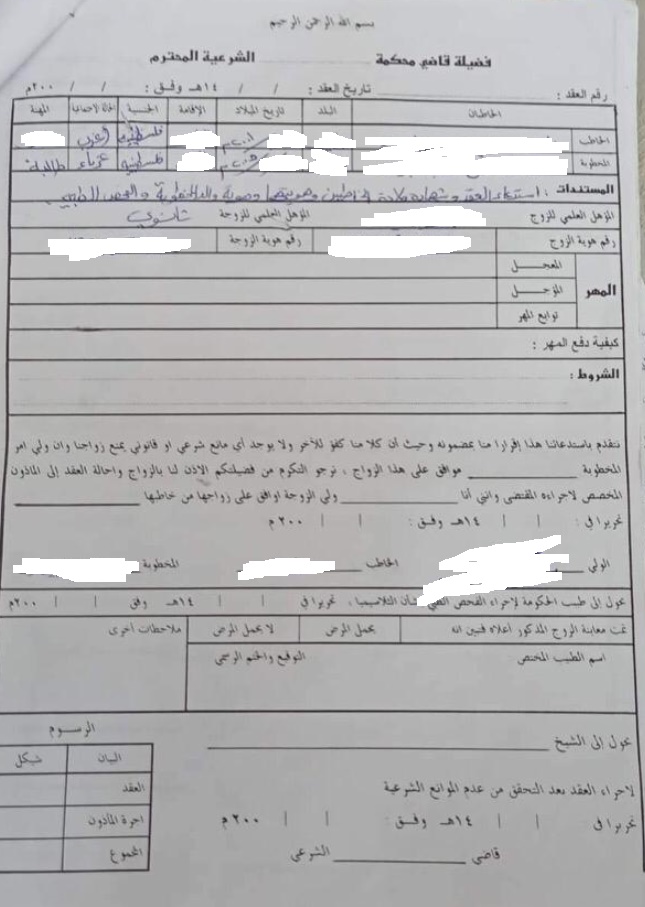 بسم الله الرحمن الرحيم
فضيلة قاضي محكمة الشرعية المحترم
رقم العقد : تاريخ العقد : / / ١٤هـ وفق : / / ٢٠٠م
الخاطبان البلد تاريخ الميلاد الإقامة الجنسية الحالة الاجتماعية المهنة
الخاطب ٢٠٠١م فلسطيني أعزب
المخطوبة ٢٠٠٥م فلسطينية عزباء طالبة
المستندات : استدعاء العقد وشهادة ولادة الخاطبين وهويتهما وهوية والد المخطوبة والفحص الطبي
المؤهل العلمي للزوج المؤهل العلمي للزوجة ثانوي
رقم هوية الزوج رقم هوية الزوجة
المهر
المعجـــل
المؤجـــل
توابع المهر
كيفية دفع المهر :
الشروط :
نتقدم باستدعائنا هذا إقرارا منا بمضمونه وحيث أن كلا منا كفؤ للآخر ولا يوجد أي مانع شرعي او قانوني يمنع زواجنا وان ولي امر
المخطوبة موافق على هذا الزواج ، نرجو التكرم من فضيلتكم الاذن لنا بالزواج واحالة العقد إلى المأذون
المختص لاجراءه المقتضى وانني أنا ولي الزوجة اوافق على زواجها من خاطبها
تحريرا في : | | ١٤هـ وفق : | | ٢٠٠م
الولي الخاطب المخطوبة
يحول إلى طبيب الحكومة لإجراء الفحص الطبي بشأن التلاسيميا ، تحريرا في | | ١٤هـ وفق | | ٢٠٠م
تمت معاينة الزوج المذكور أعلاه فتبين انه يحمل المرض لا يحمل المرض ملاحظات أخرى
اسم الطبيب المختص التوقيع والختم الرسمي
يحول إلى الشيخ
لاجراء العقد بعد التحقق من عدم الموانع الشرعية
تحريرا في | | ١٤هـ وفق : | | ٢٠٠م
قاضي الشرعي
الرســـوم
البيان شيكل
العقد
اجرة المأذون
المجموع